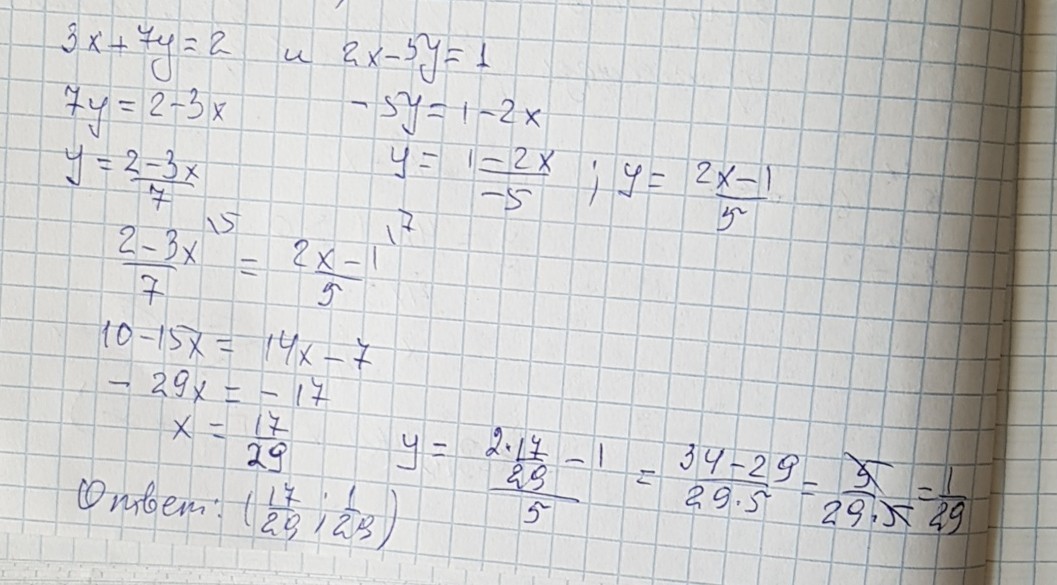 3x+7y=2 и 2x-5y=1
7y=2-3x -5y=1-2x
y=\frac{2-3x}{7} y=\frac{1-2x}{-5}; y=\frac{2x-1}{5}
\frac{2-3x}{7}^{\5} = \frac{2x-1}{5}^{\7}
10-15x=14x-7
-29x=-17
x=\frac{17}{29} y=\frac{2·\frac{17}{29}-1}{5}=\frac{34-29}{29·5}=\frac{5}{29·5}=\frac{1}{29}
Ответ: (\frac{17}{29}; \frac{1}{29})